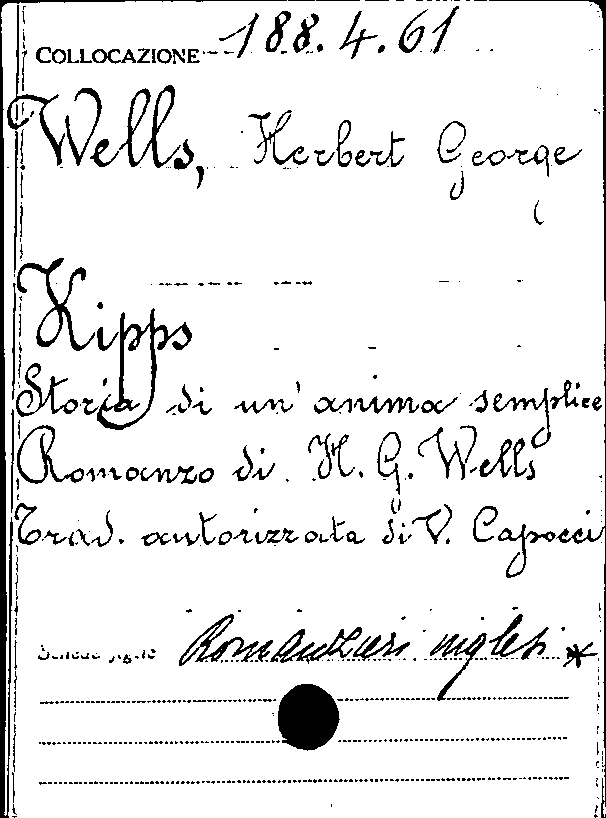 COLLOCAZIONE 188.4.61
Wells, Herbert George
Kipps
Storia di un' anima semplice
Romanzo di H. G. Wells
Trad. autorizzata di V. Capocci
Schede figlie Romanzieri inglesi *